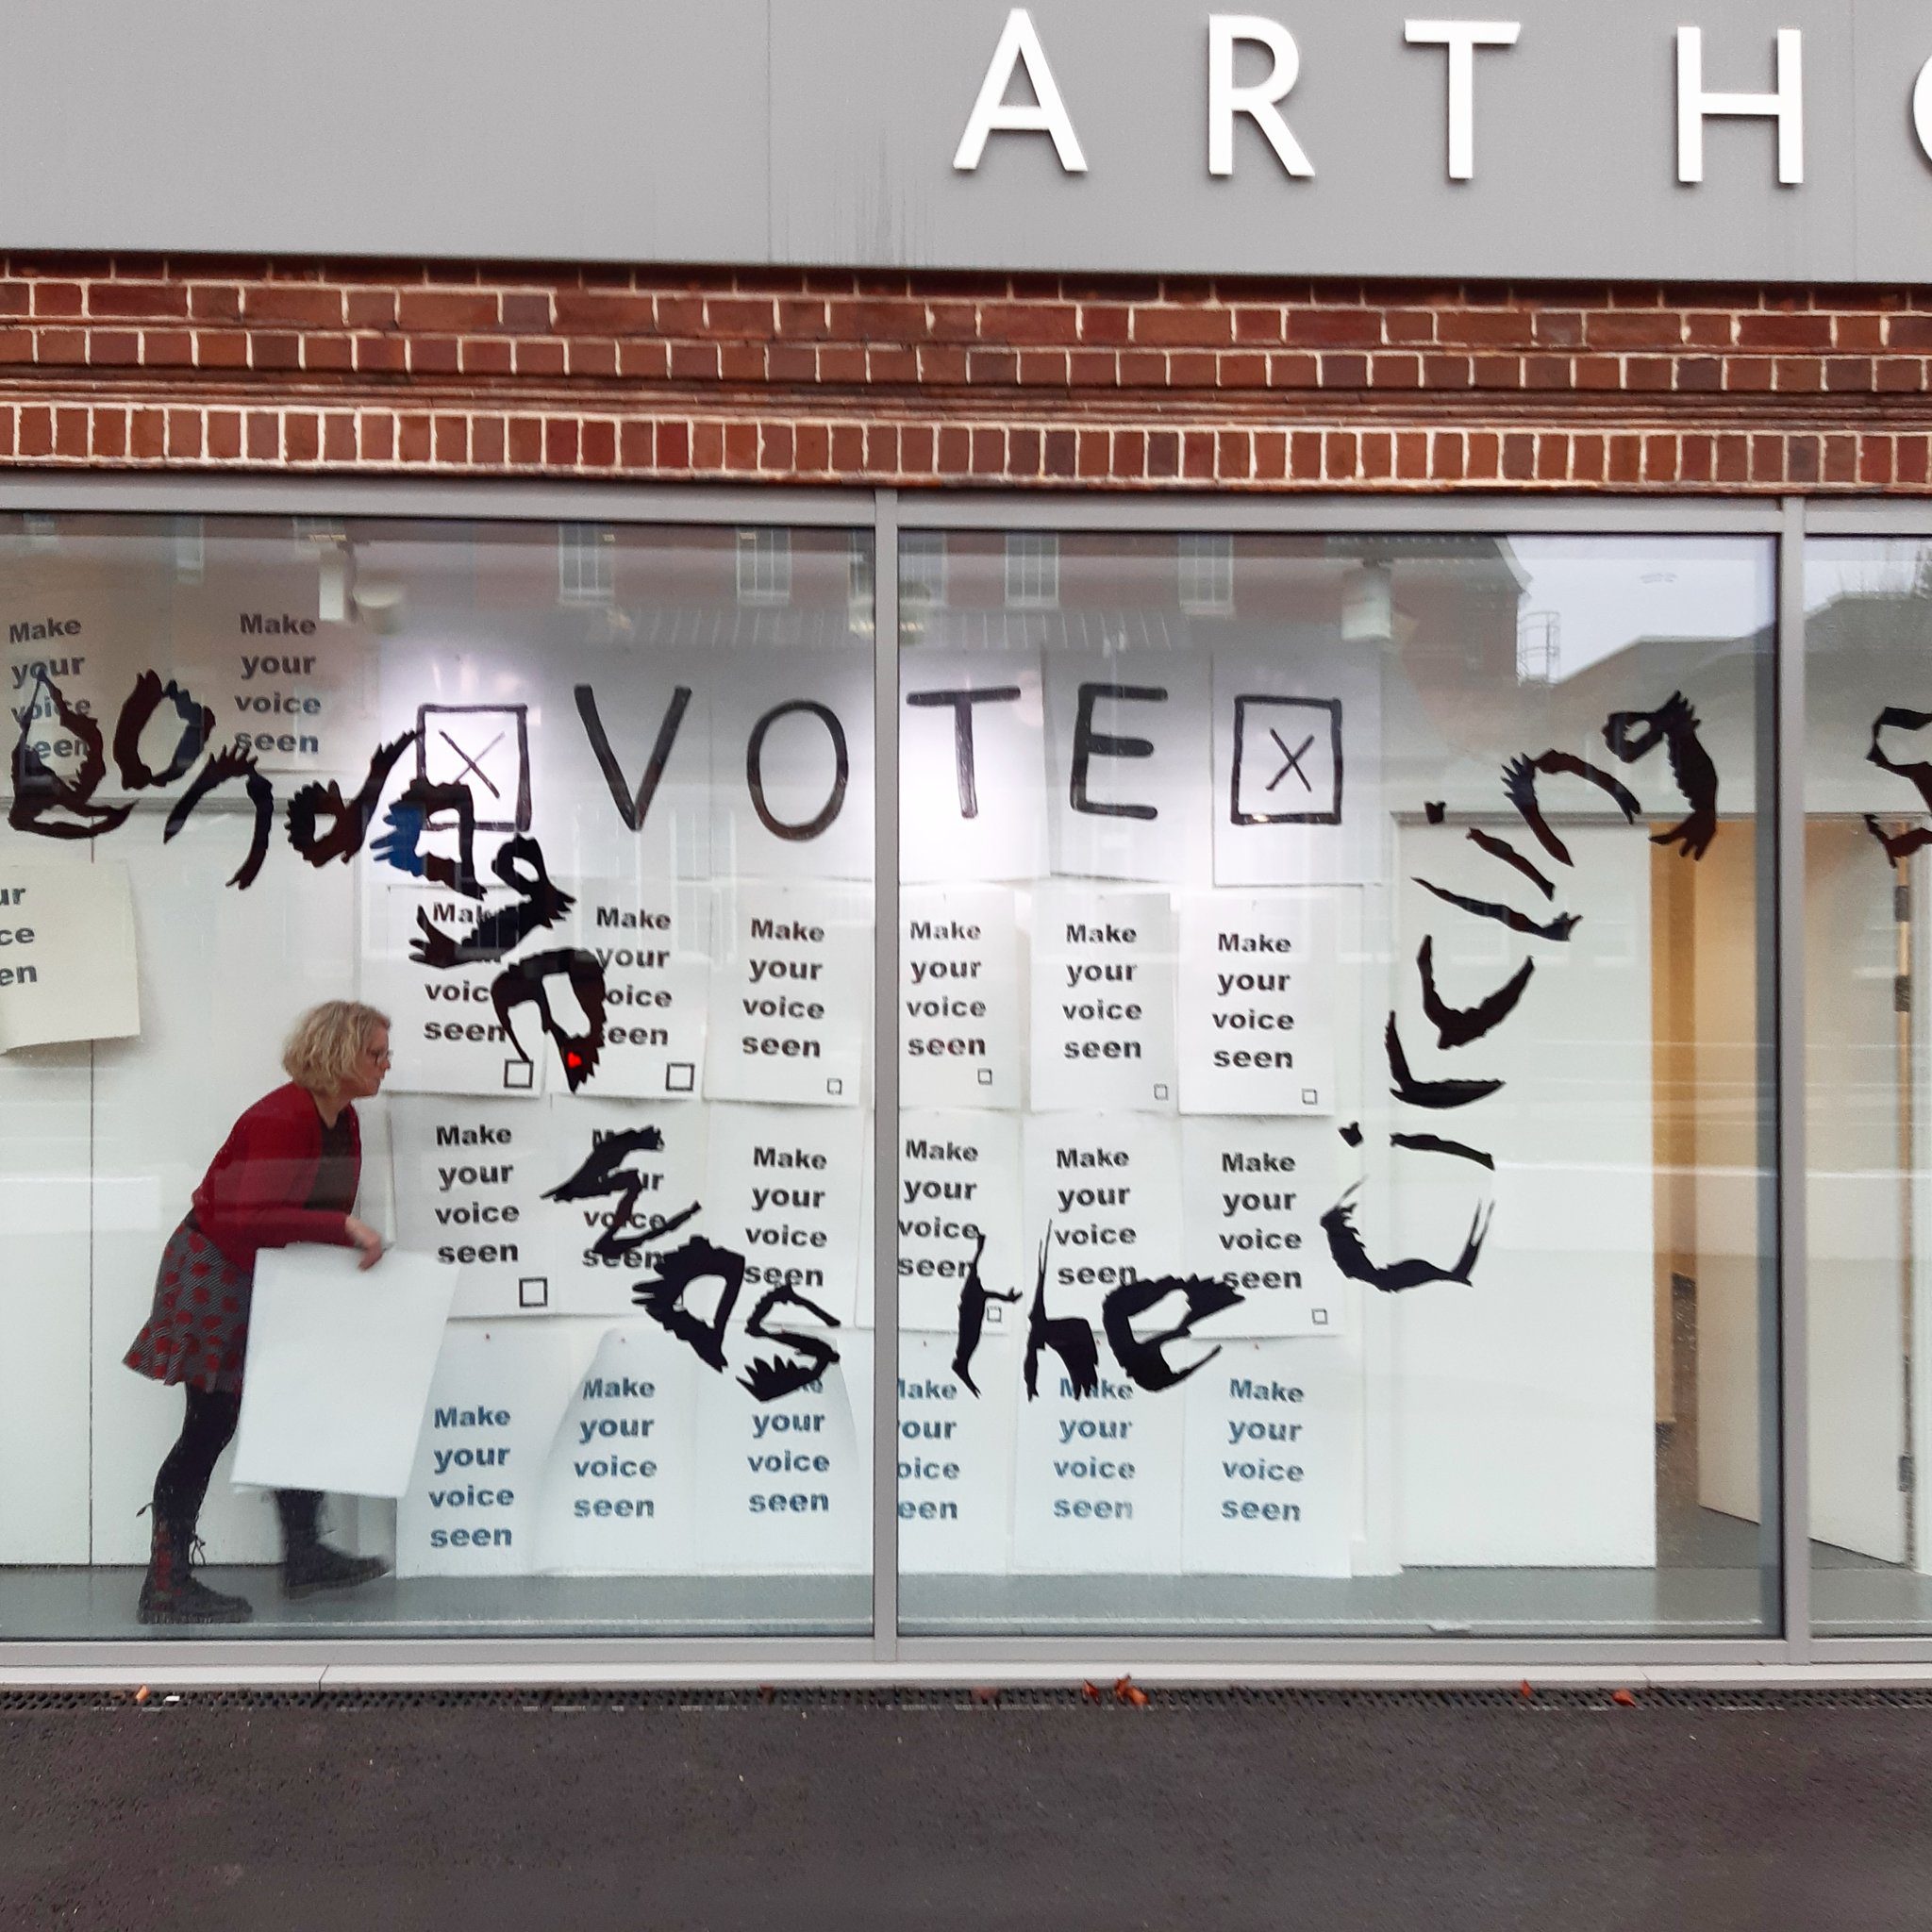 ART HO
Make
your
voice
seen
Make
your
voice
seen
VOTE
X
X
Make
voice
seen
Make
your
voice
seen
Make
your
voice
seen
Make
your
voice
seen
Make
your
voice
seen
Make
your
voice
seen
Make
your
voice
seen
Make
your
voice
seen
Make
your
voice
seen
Make
your
voice
seen
Make
your
voice
seen
Make
your
voice
seen
Make
your
voice
seen
Make
your
voice
seen
Make
your
voice
seen
Make
your
voice
seen
Make
your
voice
seen
Make
your
voice
seen
was the